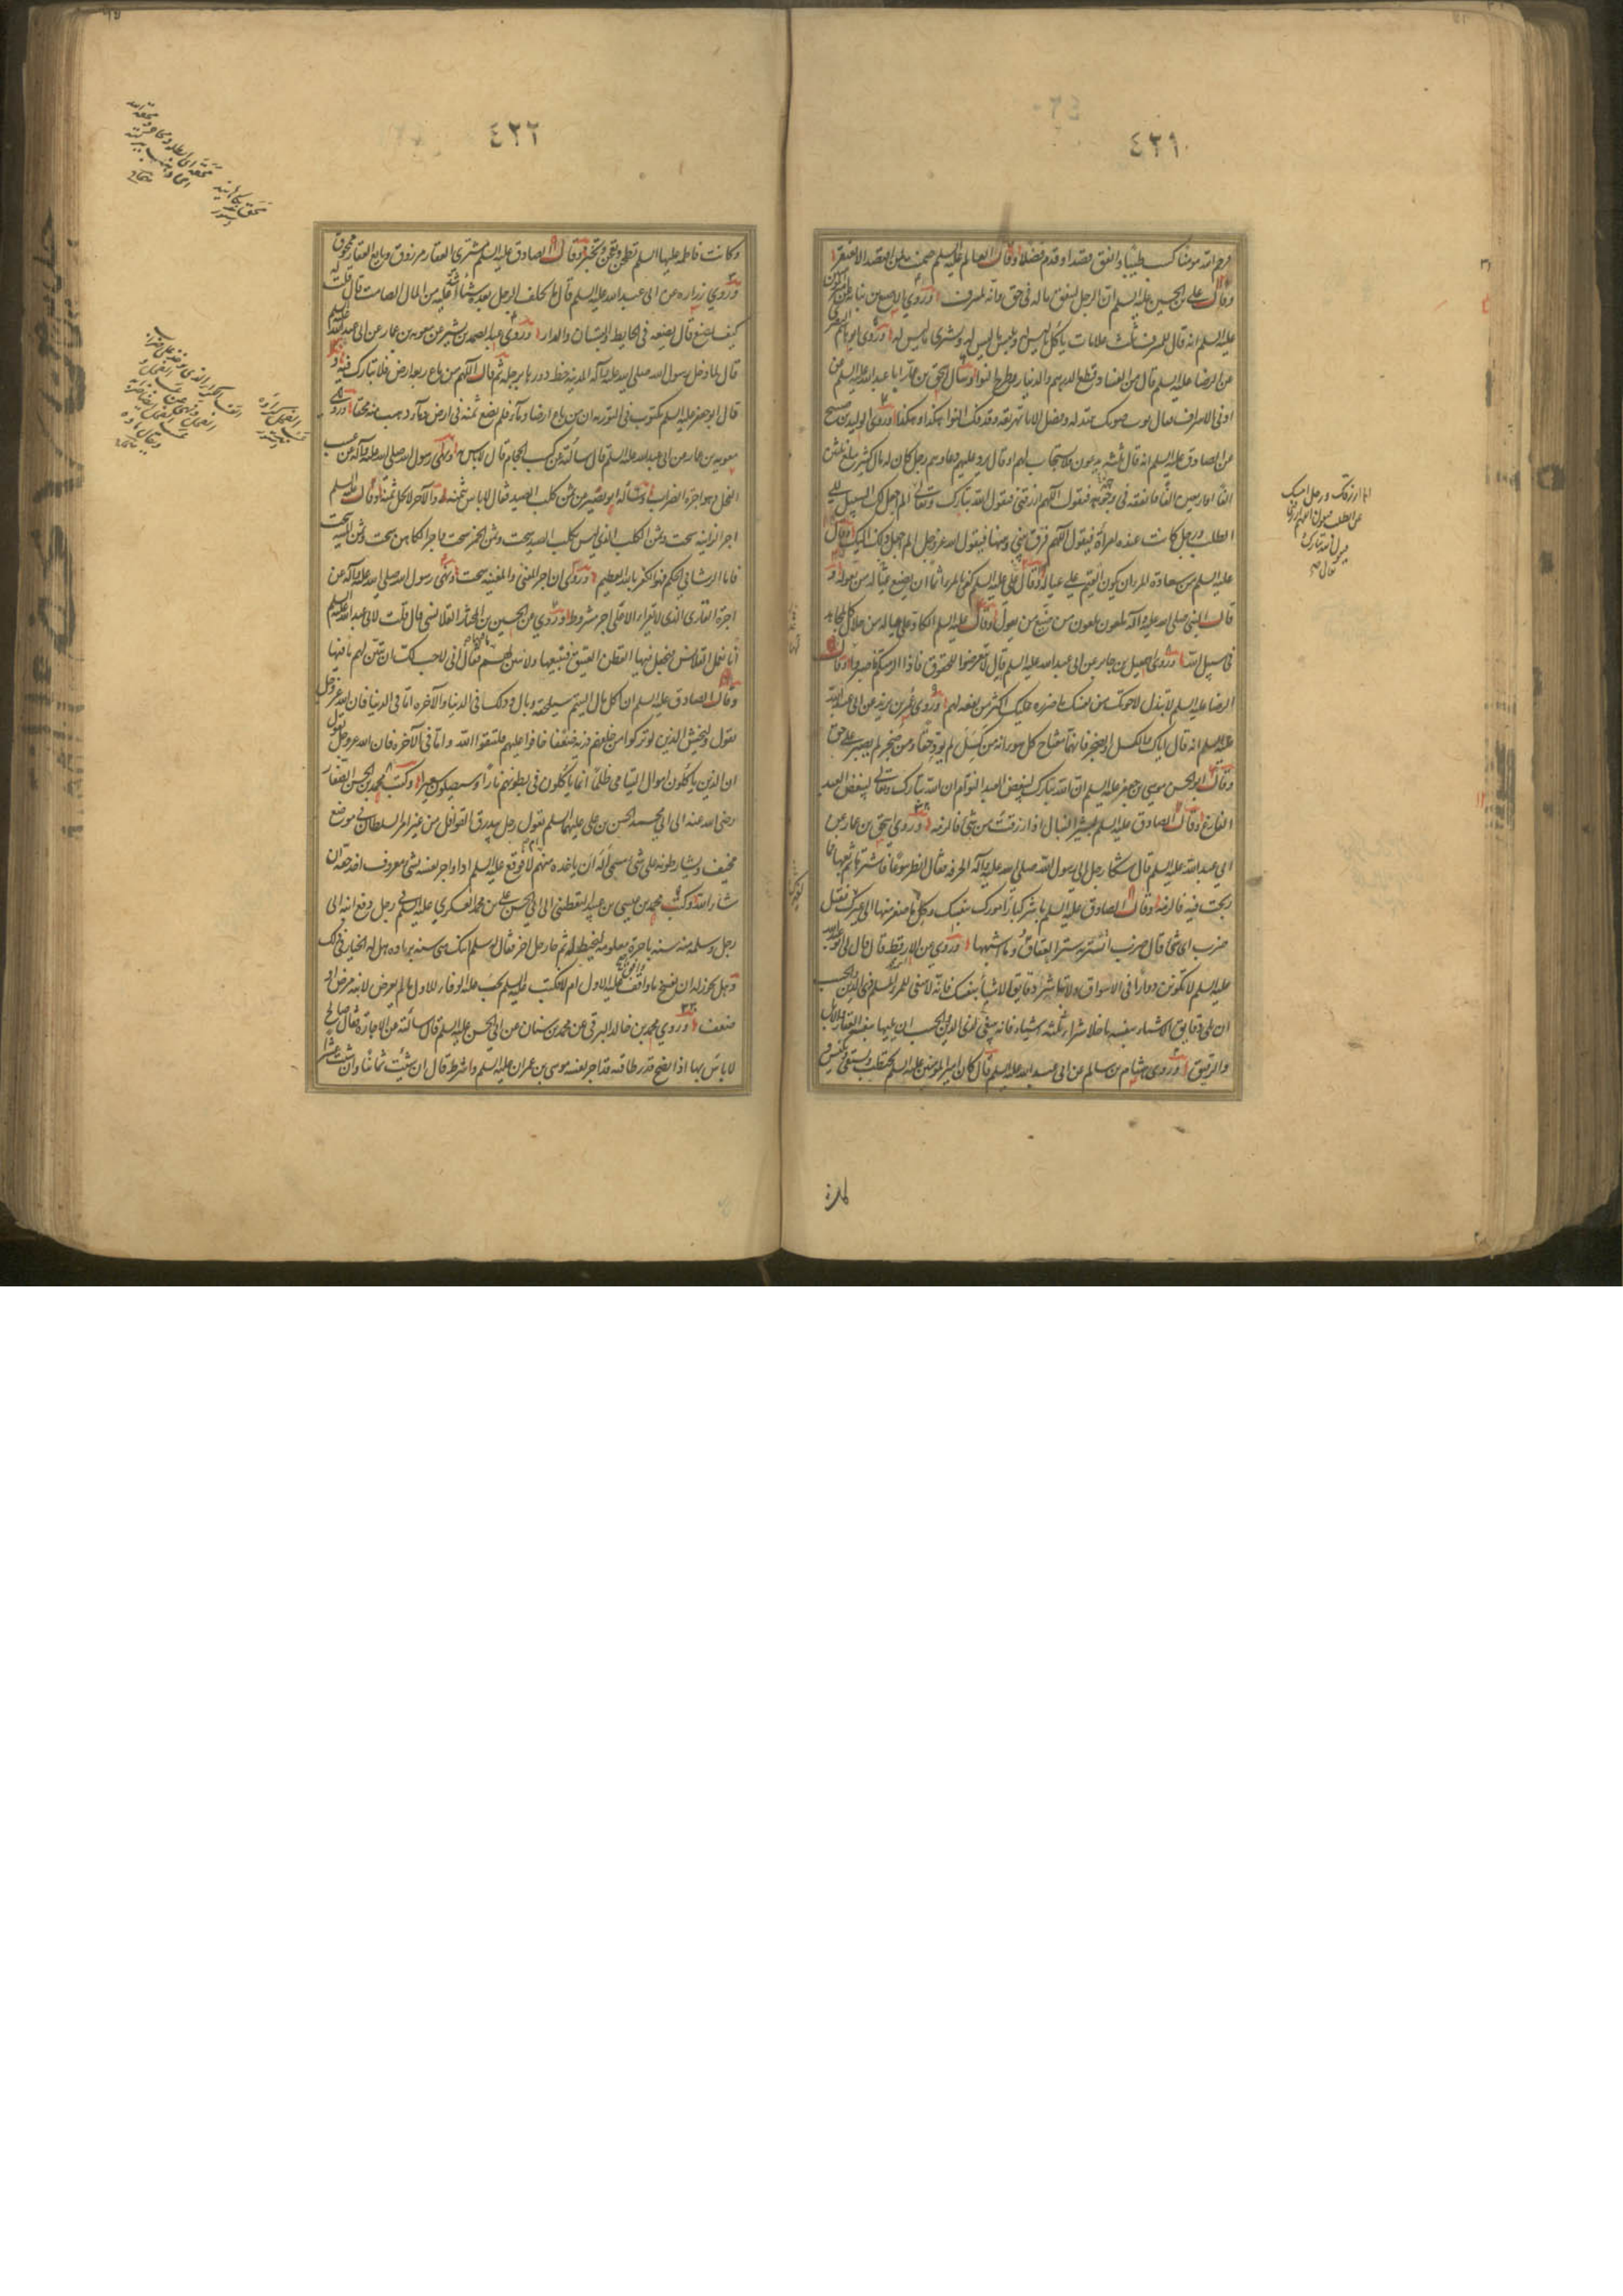 ٤٢١
فرحم الله مؤمنا كسب طيبا وانفق قصدا وقدم فضلا وقال العالم عليه السلم ضمنت لمن اقتصد ان لا يفتقر
وقال علي بن الحسين عليه السلم ان الرجل لينفق ماله في حق وانه لمسرف وروى الاصبغ بن نباته عن امير المؤمنين
عليه السلم انه قال للمسرف ثلث علامات ياكل ما ليس له ويلبس ما ليس له ويشترى ما ليس له وروى ابو هشام البصري
عن الرضا عليه السلم قال من الفساد قطع الدرهم والدينار وطرح النوا وسال اسحق بن عمار ابا عبد الله عليه السلم عن
ادنى الاسراف فقال ثوب صونك تبتذله وفضل الاناء تهريقه وقذفك النوا هكذا وهكذا وروى الوليد بن صبيح
عن الصادق عليه السلم انه قال ثلثة يدعون فلا يستجاب لهم او قال يرد عليهم دعاؤهم رجل كان له مال كثير يبلغ ثلثين
الفا او اربعين الفا فانفقه في وجوهه فيقول اللهم ارزقني فيقول الله تبارك وتعالى الم اجعل لك السبيل الى
الطلب ورجل كانت عنده امراة فيقول اللهم فرق بيني وبينها فيقول الله عز وجل الم اجعل ذلك اليك وقال
عليه السلم من سعادة المرء ان يكون القيم على عياله وقال علي عليه السلم كفى بالمرء اثما ان يضيع عياله من يعوله و
قال النبي صلى الله عليه وآله ملعون ملعون من ضيع من يعول وقال عليه السلم الكاد على عياله من حلال كالمجاهد
في سبيل الله وروى اسمعيل بن جابر عن ابي عبد الله عليه السلم قال لا تعرضوا للحقوق فاذا الزمتكم فاصبروا وقال
الرضا عليه السلم لا تبذل لاخوتك من نفسك ما ضره عليك اكثر من نفعه لهم وروى عمر بن يزيد عن ابي عبد الله
عليه السلم انه قال اياك والكسل والضجر فانهما مفتاح كل سوء انه من كسل لم يؤد حقا ومن ضجر لم يصبر على حق
وقال ابو الحسن موسى بن جعفر عليه السلم ان الله تبارك ليبغض العبد النوام ان الله تبارك وتعالى ليبغض العبد
الفارغ وقال الصادق عليه السلم لبشير النبال اذا رزقت من شئ فالزمه وروى اسحق بن عمار عن
ابي عبد الله عليه السلم قال شكا رجل الى رسول الله صلى الله عليه وآله الحرفه فقال انظر بيوعا فاشترها ثم بعها فما
ربحت فيه فالزمه وقال الصادق عليه السلم باشر كبار امورك بنفسك وكل ما صغر منها الى غيرك فقيل
ضرب اى شئ قال ضرب اشرية العقار وما اشبهها وروى عن الارقط قال قال لى ابو عبد الله
عليه السلم لا تكونن دوارا في الاسواق ولا تل شراء دقايق الاشياء بنفسك فانه لا ينبغى للمرء المسلم ذى الدين والحسب
ان يلى دقايق الاشياء بنفسه ما خلا شراء ثلثه اشياء فانه ينبغى لذى الدين والحسب ان يليها بنفسه العقار والابل
والرقيق وروى هشام بن سالم عن ابي عبد الله عليه السلم قال كان امير المؤمنين عليه السلم يحتطب ويستقى ويكنس و
اما ارزقك ورجل امسك
عن الطلب فيقول اللهم ارزقني
فيقول الله تبارك و
تعالى
٤٢٢
وكانت فاطمه عليها السلم تطحن وتعجن وتخبز وقال الصادق عليه السلم مشترى العقار مرزوق وبايع العقار ممحوق
وروي زراره عن ابى عبد الله عليه السلم قال ما يخلف الرجل بعده شيئا اشد عليه من المال الصامت قال قلت له
كيف يصنع قال يضعه في الحايط والبستان والدار وروى عبد الصمد بن بشير عن معويه بن عمار عن ابى عبد الله عليه السلم
قال لما دخل رسول الله صلى الله عليه وآله المدينه خط دورها برجله ثم قال اللهم من باع رباعه فلا تبارك فيه و
قال ابو جعفر عليه السلم مكتوب في التوريه ان من باع ارضا وماء فلم يضع ثمنه في ارض وماء ذهب ثمنه محقا وروى
معويه بن عمار عن ابى عبد الله عليه السلم قال سالته عن كسب الحجام قال لا باس به ونهى رسول الله صلى الله عليه وآله عن عسب
الفحل وهو اجرة الضراب وسأله ابو بصير عن ثمن كلب الصيد فقال لا باس بثمنه والآخر لا يحل ثمنه وقال عليه السلم
اجر الزانيه سحت وثمن الكلب الذى ليس بكلب الصيد سحت وثمن الخمر سحت واجر الكاهن سحت وثمن الميته سحت
فاما الرشا في الحكم فهو الكفر بالله العظيم وروى ان اجر المغنى والمغنيه سحت ونهى رسول الله صلى الله عليه وآله عن
اجرة القارى الذى لا يقرا الا على اجر مشروط وروي عن الحسين بن المختار القلانسى قال قلت لابى عبد الله عليه السلم
انا نعمل القلانس فنجعل فيها القطن العتيق فنبيعها ولا نبين لهم ما فيها فقال انى لاحب لك ان تبين لهم ما فيها
وقال الصادق عليه السلم ان اكل مال اليتيم سيلحقه وبال ذلك في الدنيا والآخره اما في الدنيا فان الله عز وجل
يقول وليخش الذين لو تركوا من خلفهم ذريه ضعفا خافوا عليهم فليتقوا الله واما في الآخره فان الله عز وجل يقول
ان الذين ياكلون اموال اليتامى ظلما انما ياكلون في بطونهم نارا وسيصلون سعيرا وكتب محمد بن الحسن الصفار
رضى الله عنه الى ابى محمد الحسن بن على عليهما السلم يقول رجل يبذرق القوافل من غير امر السلطان في موضع
مخيف ويشارطونه على شئ مسمى أله ان ياخذه منهم ام لا فوقع عليه السلم اذا واجر نفسه بشئ معروف اخذ حقه ان
شاء الله وكتب محمد بن عيسى بن عبيد اليقطينى الى ابى الحسن على بن محمد العسكري عليه السلم في رجل دفع ابنه الى
رجل وسلمه منه سنه باجرة معلومه ليخيط له ثم جاء رجل اخر فقال له سلم ابنك منى سنه بزياده هل له الخيار في ذلك
وهل يجوز له ان يفسخ ما واقف عليه الاول ام لا فكتب عليه السلم يجب عليه الوفاء للاول ما لم يعرض لابنه مرض او
ضعف وروي محمد بن خالد البرقى عن محمد بن سنان عن ابى الحسن عليه السلم قال سالته عن الاجاره فقال صالح
لا باس بها اذا نصح قدر طاقته قد اجر نفسه موسى بن عمران عليه السلم واشترط قال ان شئت ثمانيا وان شئت عشرا